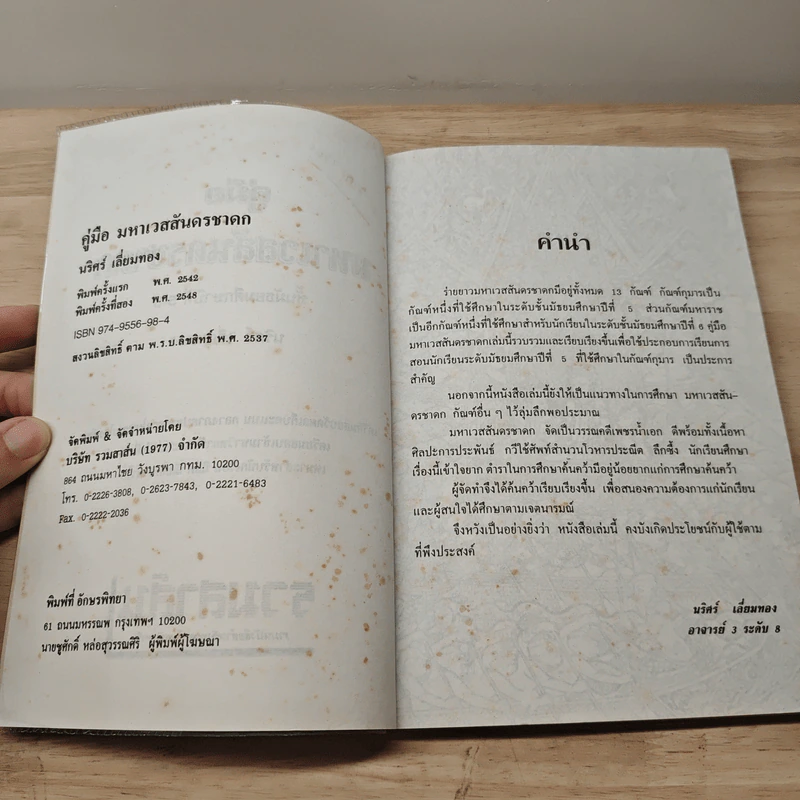 คู่มือ มหาเวสสันดรชาดก
นริศร์ เลี่ยมทอง
พิมพ์ครั้งแรก พ.ศ. 2542
พิมพ์ครั้งที่สอง พ.ศ. 2548
ISBN 974-9556-98-4
สงวนลิขสิทธิ์ ตาม พ.ร.บ.ลิขสิทธิ์ พ.ศ. 2537
จัดพิมพ์ & จัดจำหน่ายโดย
บริษัท รวมสาส์น (1977) จำกัด
864 ถนนมหาไชย วังบูรพา กทม. 10200
โทร. 0-2226-3808, 0-2623-7843, 0-2221-6483
Fax. 0-2222-2036
พิมพ์ที่ อักษรพิทยา
61 ถนนมหรรณพ กรุงเทพฯ 10200
นายชูศักดิ์ หล่อสุวรรณศิริ ผู้พิมพ์ผู้โฆษณา
คำนำ
ร่ายยาวมหาเวสสันดรชาดกมีอยู่ทั้งหมด 13 กัณฑ์ กัณฑ์กุมารเป็น
กัณฑ์หนึ่งที่ใช้ศึกษาในระดับชั้นมัธยมศึกษาปีที่ 5 ส่วนกัณฑ์มหาราช
เป็นอีกกัณฑ์หนึ่งที่ใช้ศึกษาสำหรับนักเรียนในระดับชั้นมัธยมศึกษาปีที่ 6 คู่มือ
มหาเวสสันดรชาดกเล่มนี้รวบรวมและเรียบเรียงขึ้นเพื่อใช้ประกอบการเรียนการ
สอนนักเรียนระดับมัธยมศึกษาปีที่ 5 ที่ใช้ศึกษาในกัณฑ์กุมาร เป็นประการ
สำคัญ
นอกจากนี้หนังสือเล่มนี้ยังให้เป็นแนวทางในการศึกษา มหาเวสสัน-
ดรชาดก กัณฑ์อื่น ๆ ไว้ลุ่มลึกพอประมาณ
มหาเวสสันดรชาดก จัดเป็นวรรณคดีเพชรน้ำเอก ดีพร้อมทั้งเนื้อหา
ศิลปะการประพันธ์ กวีใช้ศัพท์สำนวนโวหารประณีต ลึกซึ้ง นักเรียนศึกษา
เรื่องนี้เข้าใจยาก ตำราในการศึกษาค้นคว้ามีอยู่น้อยยากแก่การศึกษาค้นคว้า
ผู้จัดทำจึงได้ค้นคว้าเรียบเรียงขึ้น เพื่อสนองความต้องการแก่นักเรียน
และผู้สนใจได้ศึกษาตามเจตนารมณ์
จึงหวังเป็นอย่างยิ่งว่า หนังสือเล่มนี้ คงบังเกิดประโยชน์กับผู้ใช้ตาม
ที่พึงประสงค์
นริศร์ เลี่ยมทอง
อาจารย์ 3 ระดับ 8